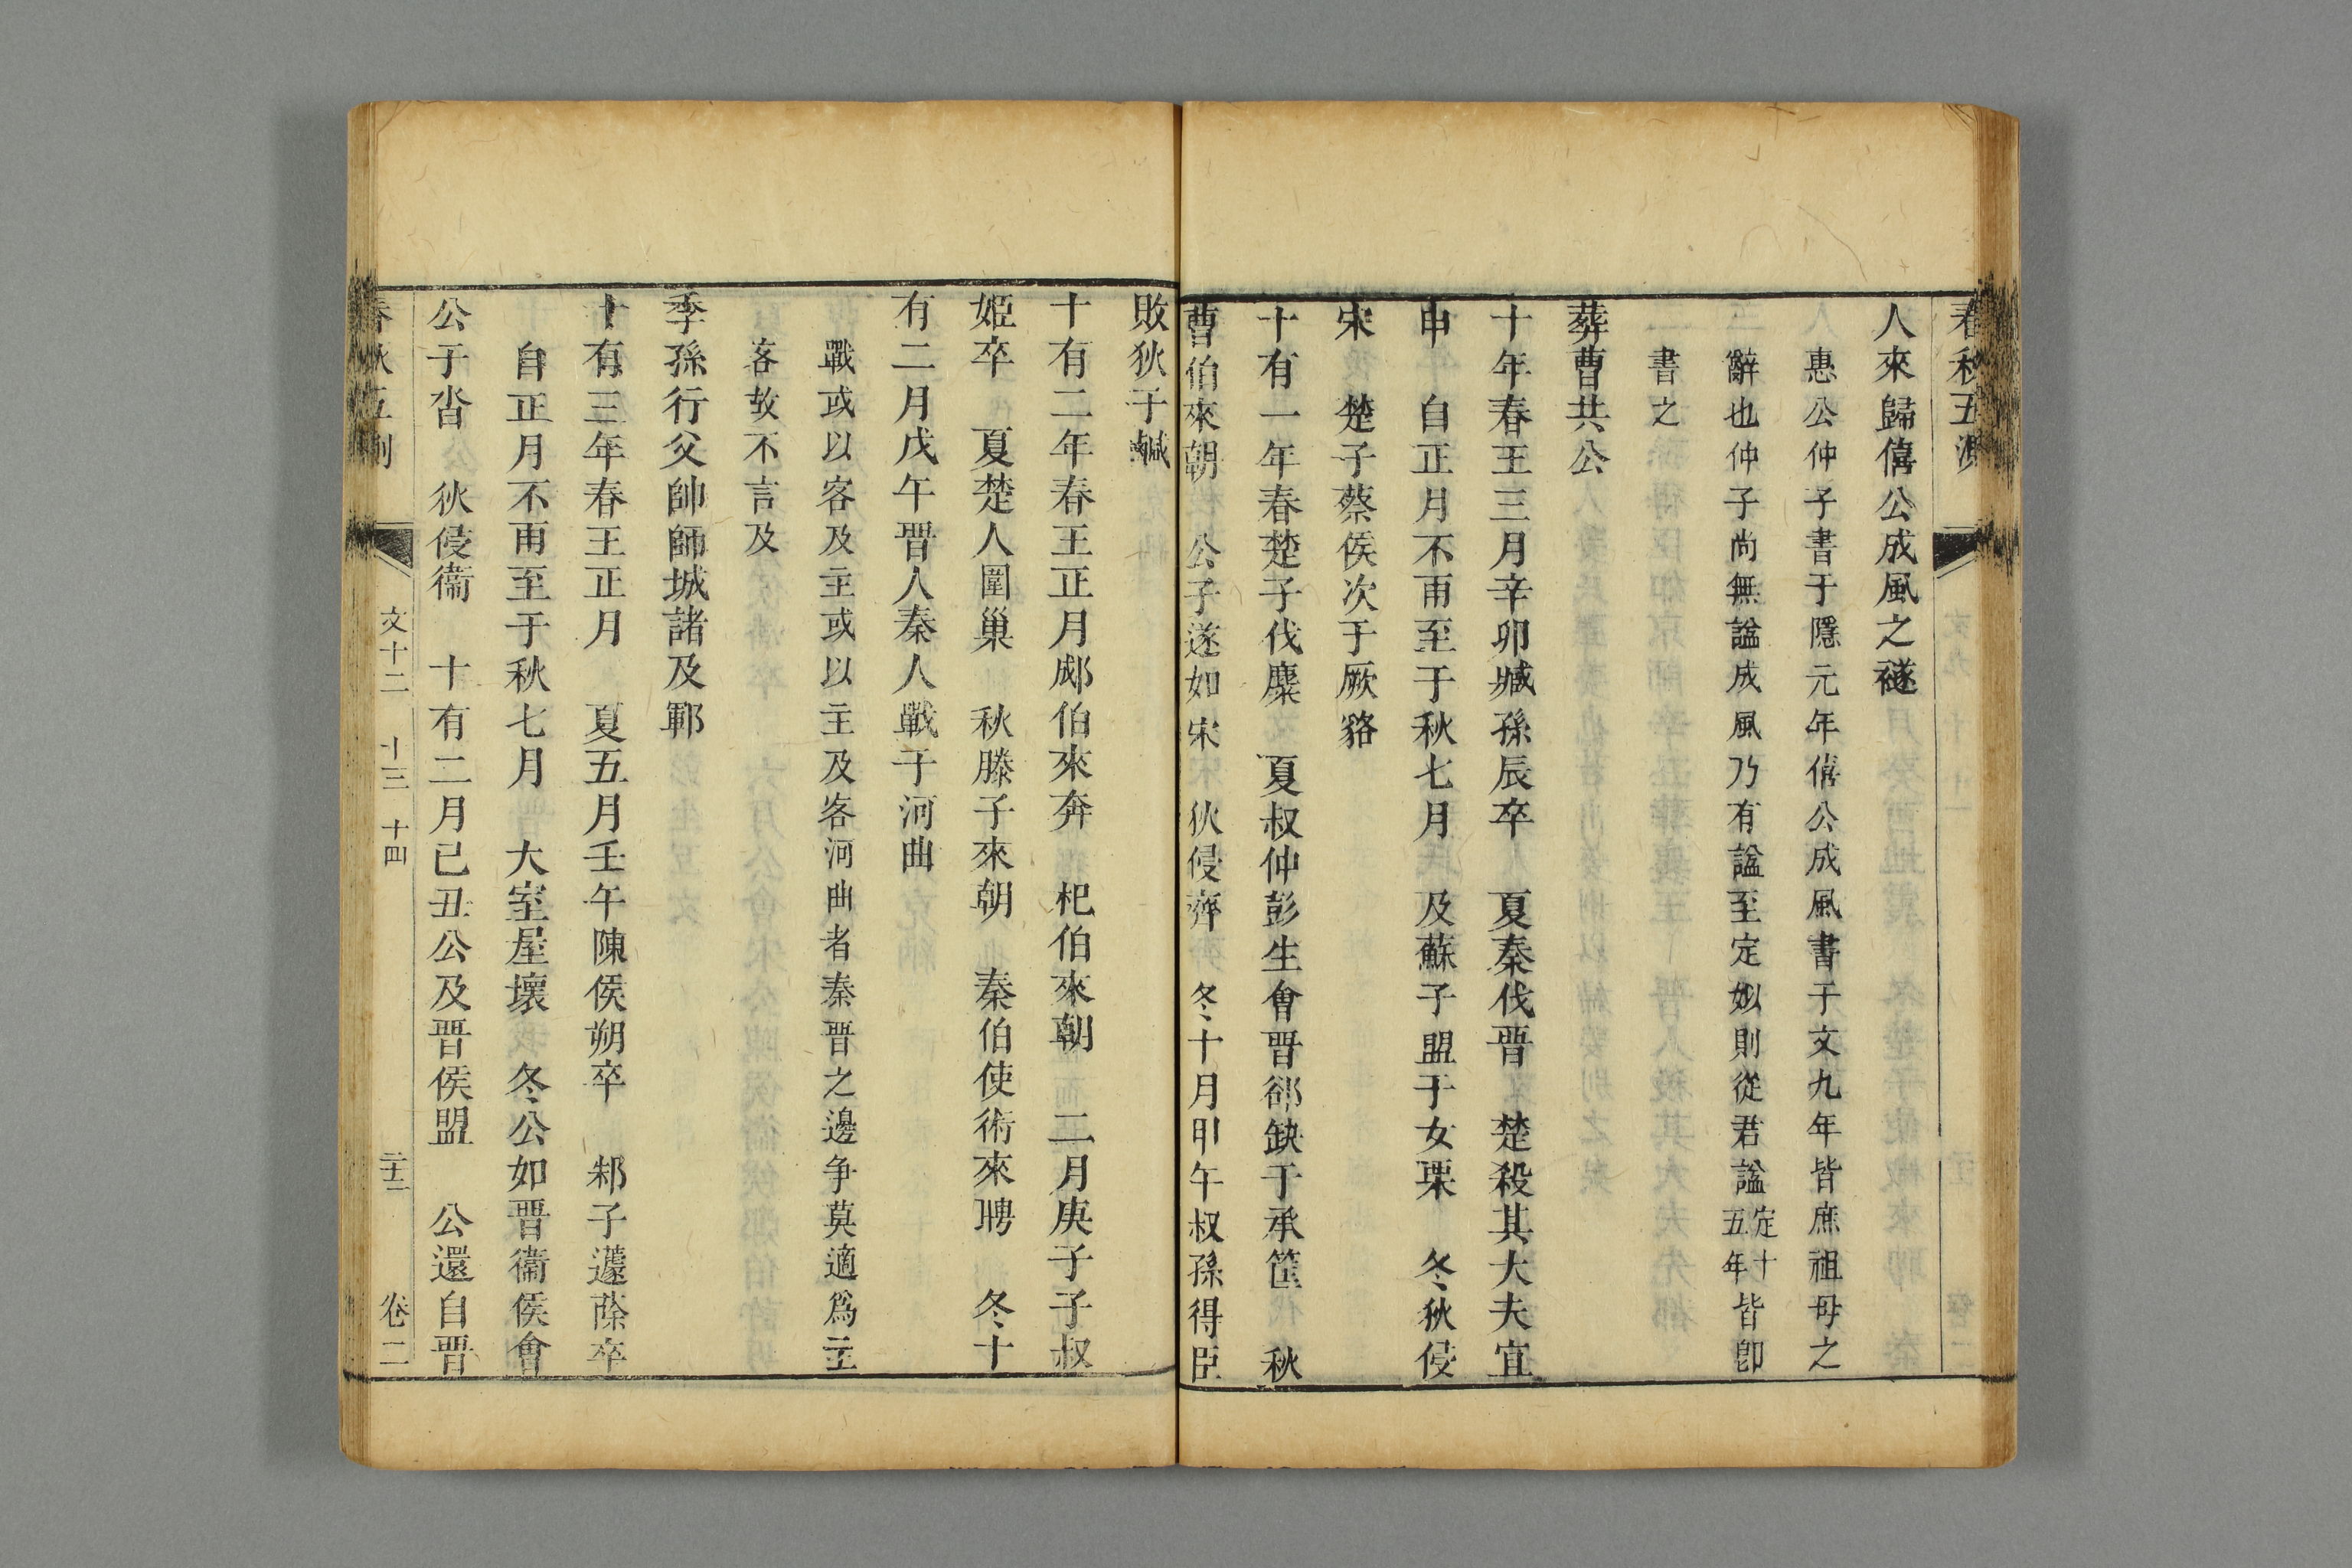 春秋五測
人來歸僖公成風之襚
惠公仲子書于隱元年僖公成風書于文九年皆庶祖母之
辭也仲子尚無諡成風乃有諡至定姒則從君諡定十五年皆卽
書之
葬曹共公
十年春王三月辛卯臧孫辰卒 夏秦伐晋 楚殺其大夫宜
申 自正月不雨至于秋七月 及蘇子盟于女栗 冬狄侵
宋 楚子蔡侯次于厥貉
十有一年春楚子伐麋 夏叔仲彭生會晋郤缺于承筐 秋
曹伯來朝 公子遂如宋 狄侵齊 冬十月甲午叔孫得臣
敗狄于鹹
十有二年春王正月郕伯來奔 杞伯來朝 二月庚子子叔
姬卒 夏楚人圍巢 秋滕子來朝 秦伯使術來聘 冬十
有二月戊午晋人秦人戰于河曲
戰或以客及主或以主及客河曲者秦晋之邊争莫適爲主
客故不言及
季孫行父帥師城諸及鄆
十有三年春王正月 夏五月壬午陳侯朔卒 邾子蘧蒢卒
自正月不雨至于秋七月 大室屋壞 冬公如晋衞侯會
公于沓 狄侵衞 十有二月己丑公及晋侯盟 公還自晋
春秋五測 文十二 十三 十四 卷二